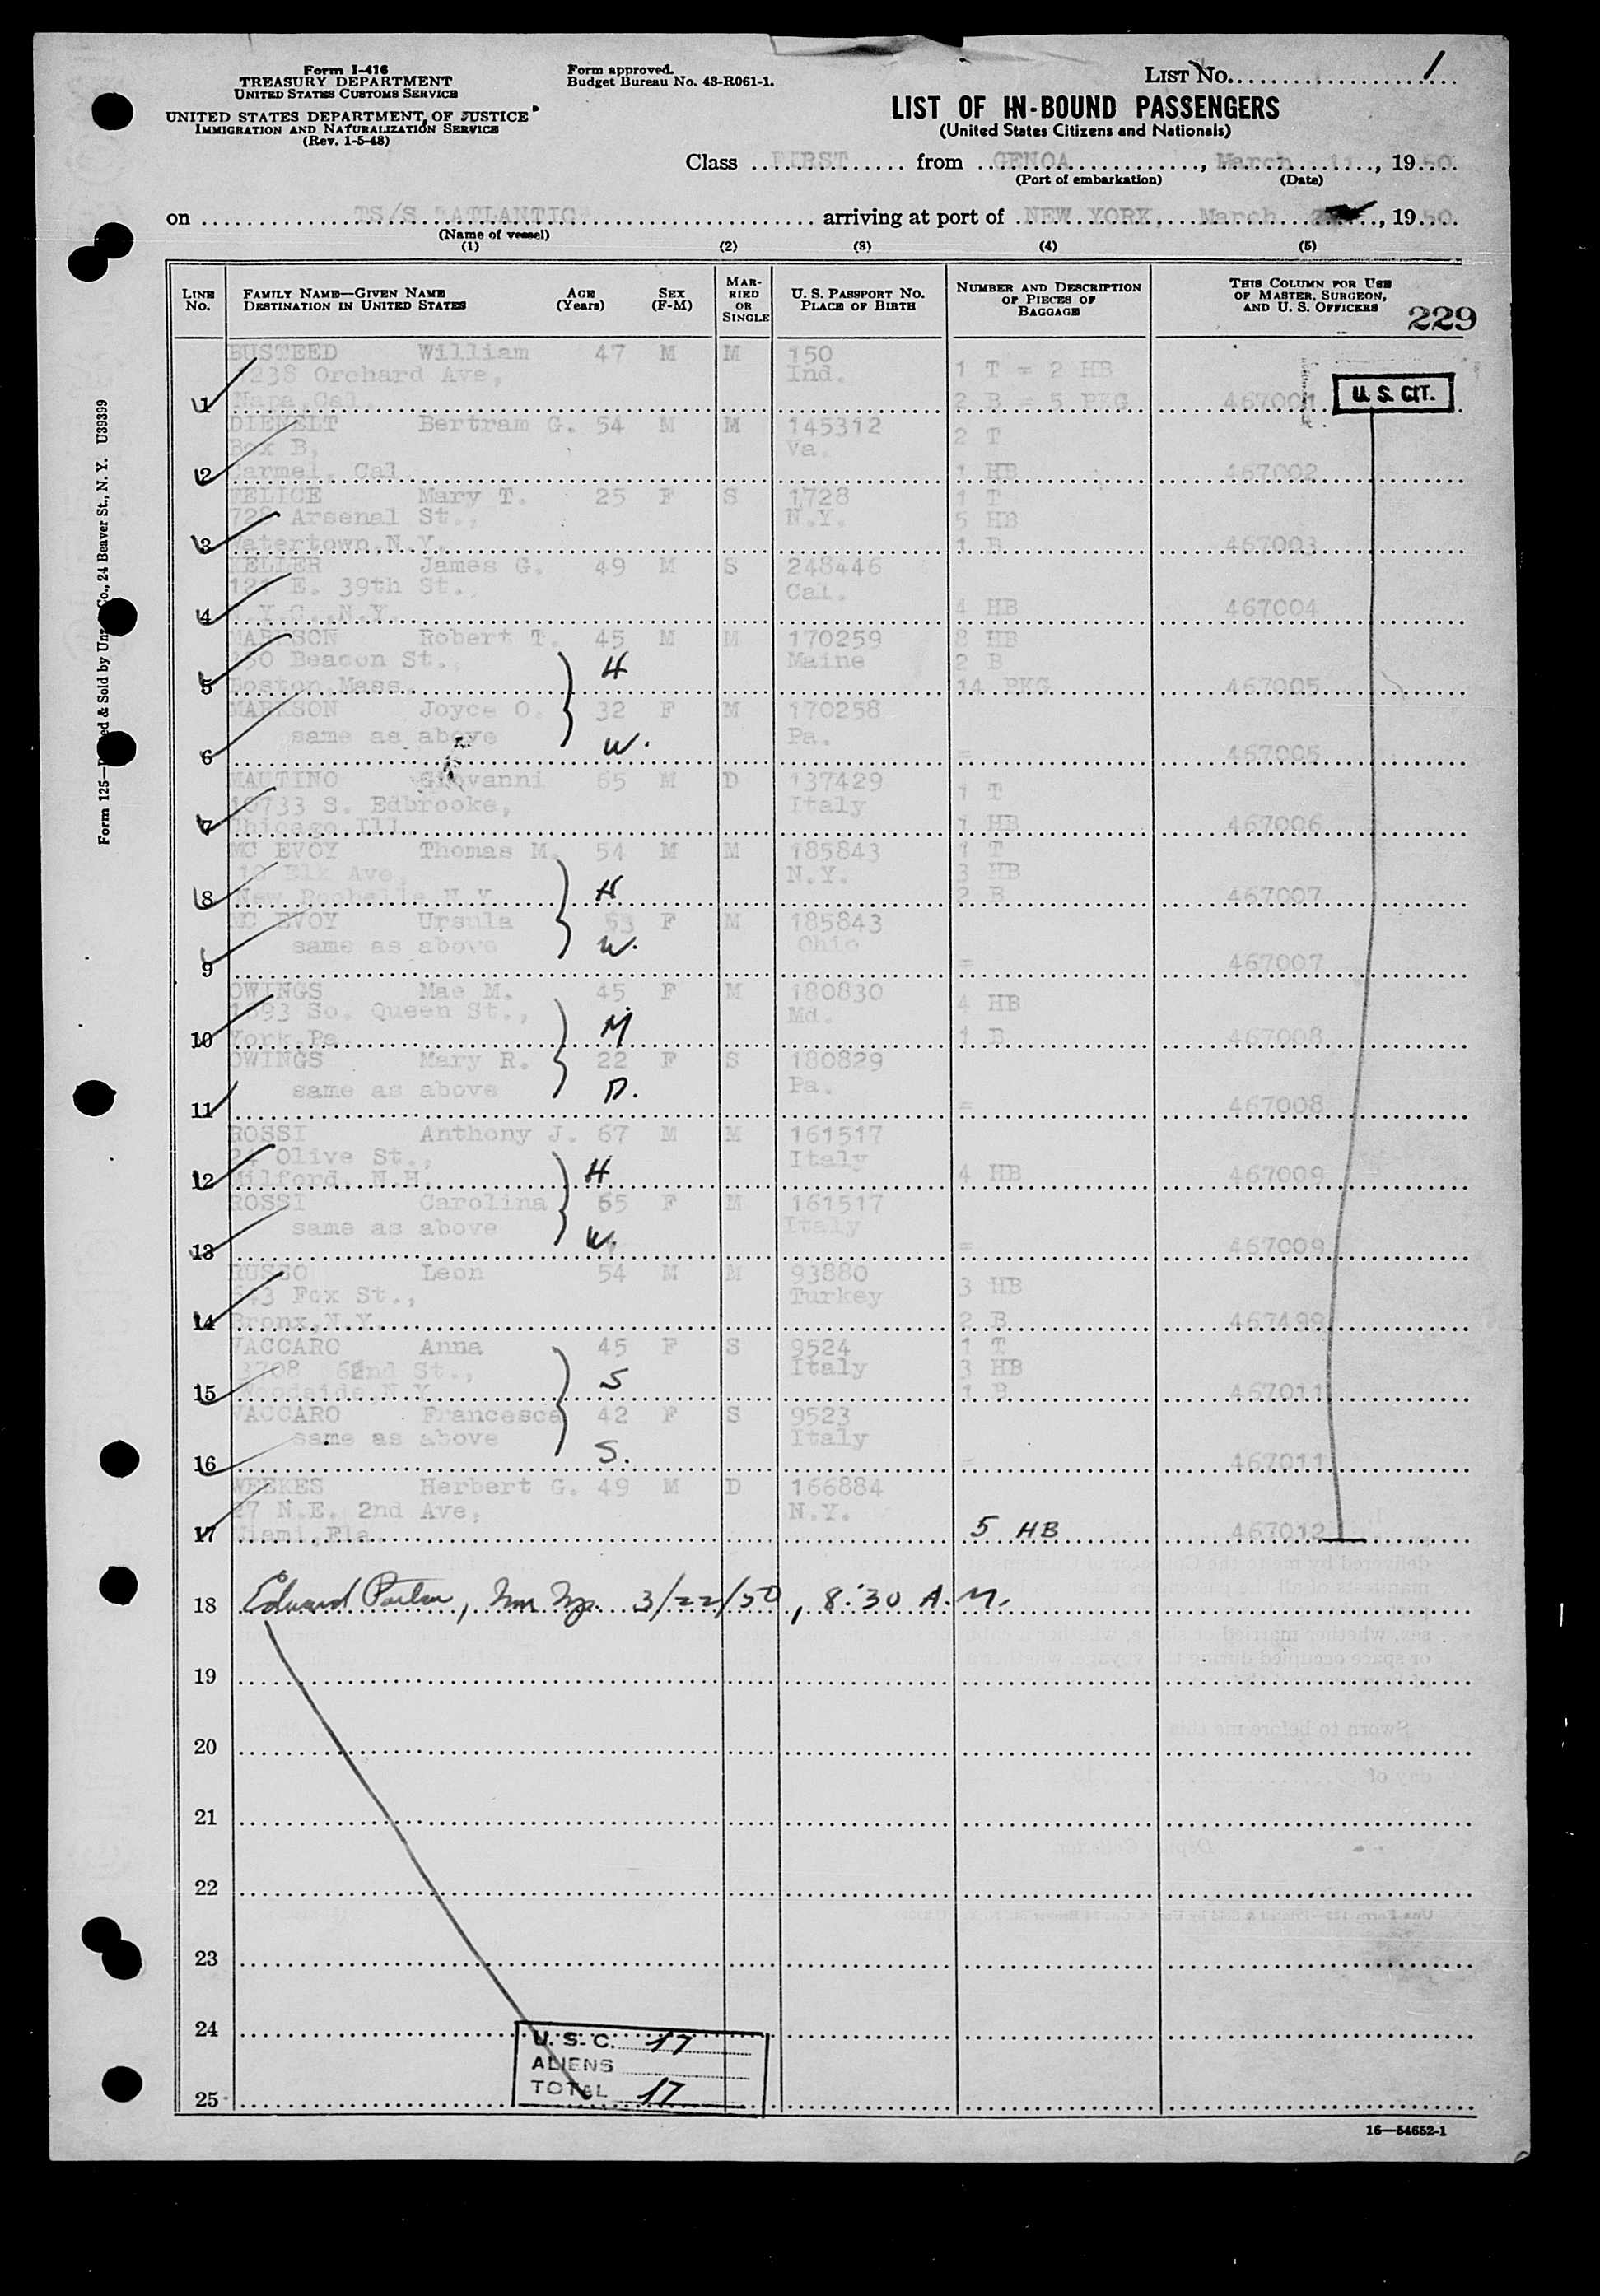 Form I-416
TREASURY DEPARTMENT
UNITED STATES CUSTOMS SERVICE
UNITED STATES DEPARTMENT OF JUSTICE
IMMIGRATION AND NATURALIZATION SERVICE
(Rev. 1-5-48)
Form approved.
Budget Bureau No. 43-R061-1.
LIST No. 1
LIST OF IN-BOUND PASSENGERS
(United States Citizens and Nationals)
Class FIRST from GENOA, March 11, 1950
(Port of embarkation) (Date)
on TS/S "ATLANTIC" arriving at port of NEW YORK, March , 1950
(Name of vessel)
(1) (2) (3) (4) (5)
LINE No. FAMILY NAME—GIVEN NAME DESTINATION IN UNITED STATES AGE (Years) SEX (F-M) MARRIED OR SINGLE U. S. PASSPORT No. PLACE OF BIRTH NUMBER AND DESCRIPTION OF PIECES OF BAGGAGE THIS COLUMN FOR USE OF MASTER, SURGEON, AND U. S. OFFICERS
229
BUSTEED William 47 M M 150
238 Orchard Ave, Ind. 1 T = 2 HB
1 Napa, Cal. 2 B = 5 PKG 467001 U. S. CIT.
DIENELT Bertram G. 54 M M 145312
Box B, Va. 2 T
2 Carmel, Cal. 1 HB 467002
FELICE Mary T. 25 F S 1728 1 T
728 Arsenal St., N.Y. 5 HB
3 Watertown, N.Y. 1 B 467003
KELLER James G. 49 M S 248446
121 E. 39th St., Cal.
4 N.Y.C., N.Y. 4 HB 467004
MARKSON Robert T. 45 M M 170259 8 HB
350 Beacon St., H Maine 2 B
5 Boston, Mass. 14 PKG 467005
MARKSON Joyce O. 32 F M 170258
same as above W. Pa.
6 = 467005
MAUTINO Giovanni 65 M D 137429
10733 S. Edbrooke, Italy 1 T
7 Chicago, Ill. 1 HB 467006
MC EVOY Thomas M. 54 M M 185843 1 T
10 Elk Ave, H N.Y. 3 HB
8 New Rochelle, N.Y. 2 B 467007
MC EVOY Ursula 53 F M 185843
same as above W. Ohio
9 = 467007
OWINGS Mae M. 45 F M 180830
1393 So. Queen St., M Md. 4 HB
10 York, Pa. 1 B 467008
OWINGS Mary R. 22 F S 180829
same as above D. Pa.
11 = 467008
ROSSI Anthony J. 67 M M 161517
24 Olive St., H Italy
12 Milford, N.H. 4 HB 467009
ROSSI Carolina 65 F M 161517
same as above W. Italy
13 = 467009
RUSSO Leon 54 M M 93880
643 Fox St., Turkey 3 HB
14 Bronx, N.Y. 2 B 467499
VACCARO Anna 45 F S 9524 1 T
3708 62nd St., S Italy 3 HB
15 Woodside, N.Y. 1 B 467011
VACCARO Francesca 42 F S 9523
same as above S. Italy
16 = 467011
WEEKES Herbert G. 49 M D 166884
27 N.E. 2nd Ave, N.Y.
17 Miami, Fla. 5 HB 467012
18 Edward , 3/22/50, 8:30 A.M.
19
20
21
22
23
24
U. S. C. 17
ALIENS
TOTAL 17
25
16—54652-1
Form 125—ed & Sold by Co., 24 Beaver St., N. Y. U39399